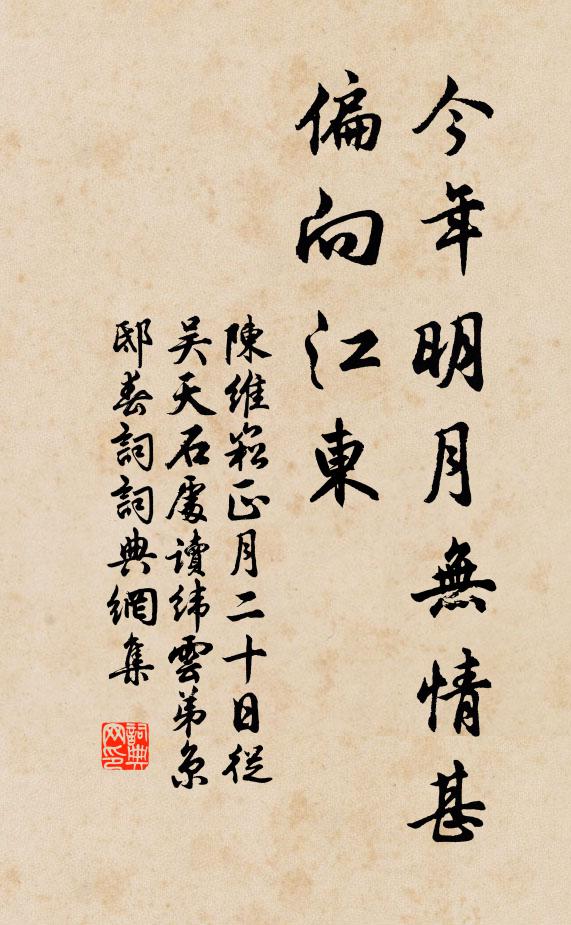 今年明月無情甚
偏向江東
陳維崧正月二十日從
吴天石處讀緯雲弟京
邸春詞詞典網集
詞典
网印